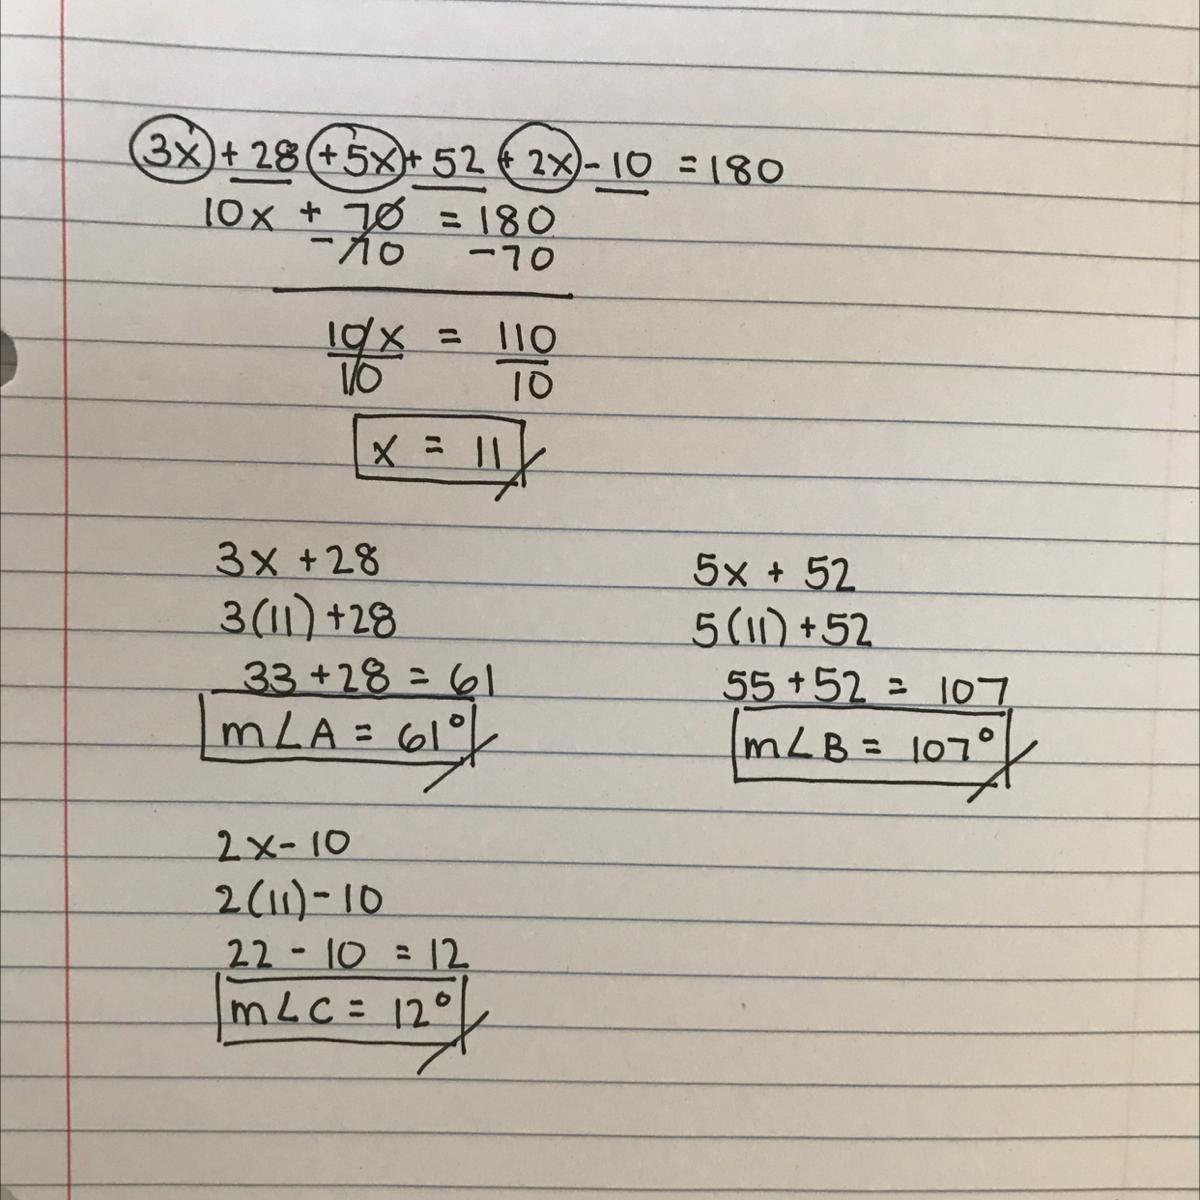 3x + 28 + 5x + 52 + 2x - 10 = 180
10x + 70 = 180
- 70 - 70
10x = 110
10 10
x = 11
3x + 28
3(11) + 28
33 + 28 = 61
m∠A = 61°
5x + 52
5(11) + 52
55 + 52 = 107
m∠B = 107°
2x - 10
2(11) - 10
22 - 10 = 12
m∠C = 12°